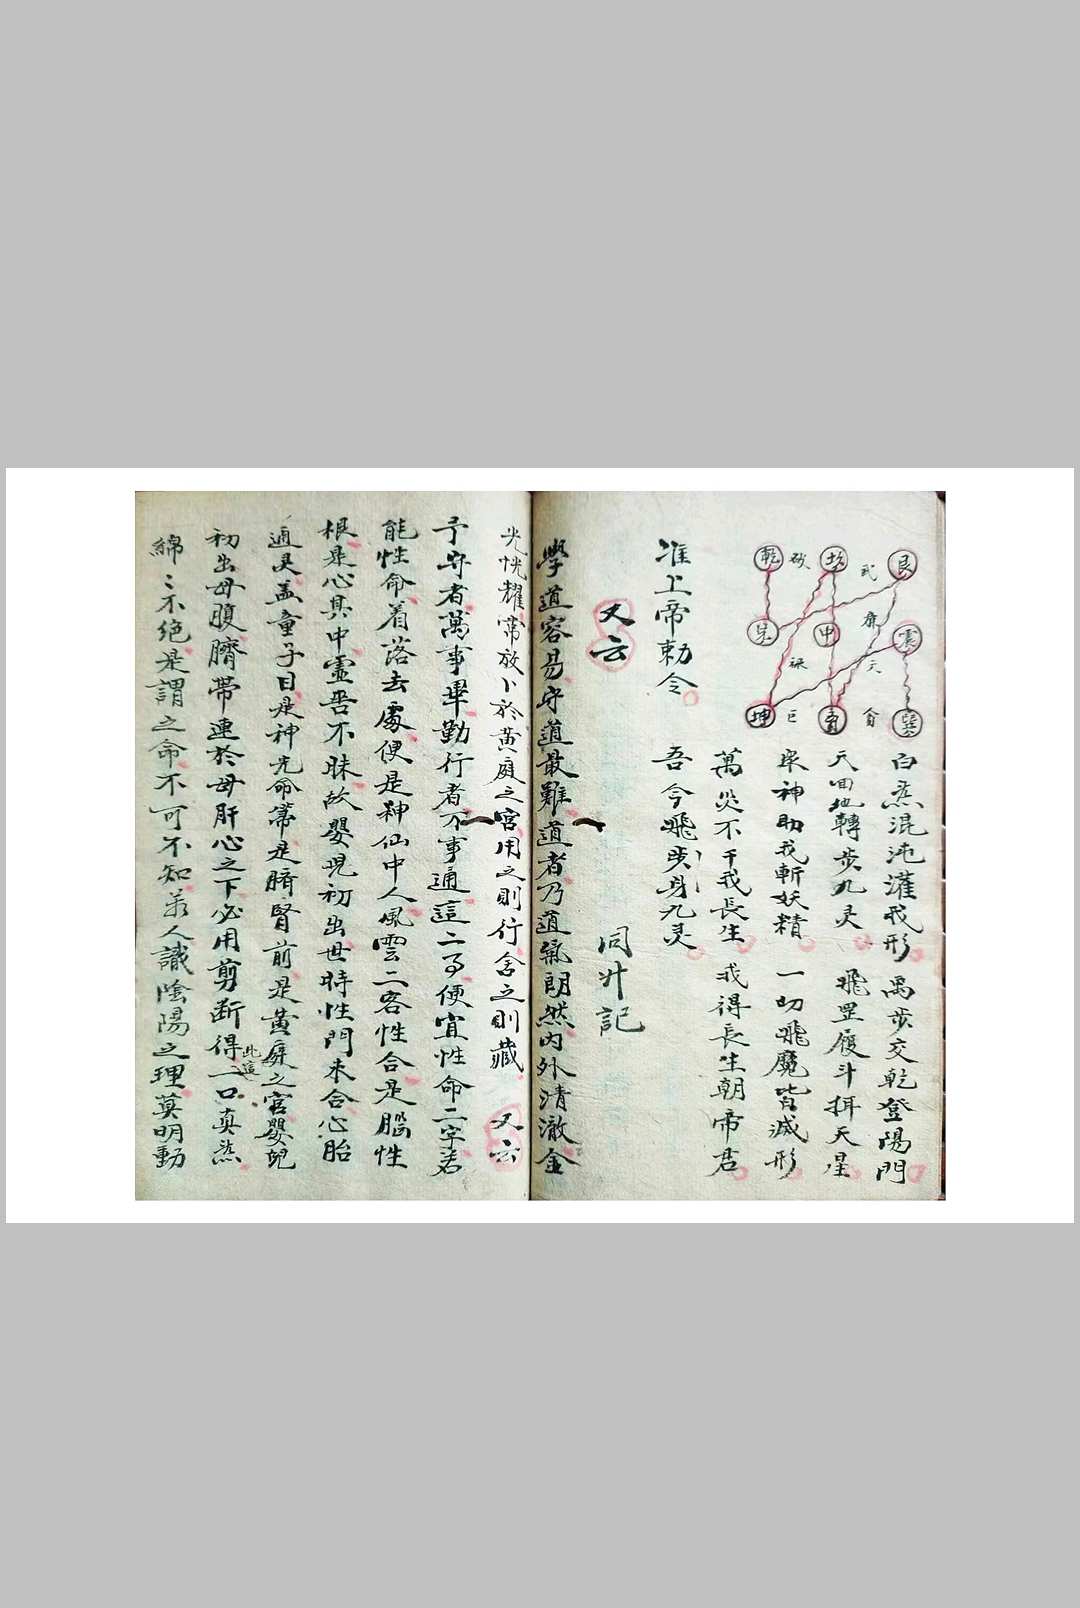 乾 破 坎 武 艮
兌 中 廉 震
祿 文
坤 巨 离 貪 巽
白炁混沌灌我形 禹步交乾登陽門
天回地轉步九灵 飛罡履斗捛天星
眾神助我斬妖精 一切飛魔皆滅形
萬災不干我長生 我得長生朝帝君
吾今飛步身九灵
准上帝勅令
又云 同升記
學道容易守道最難道者乃道氣朗然內外清澈金
光恍耀常放卜於黃庭之宮用之則行舍之則藏 又云
予守者萬事畢勤行者不事通這二字便宜性命二字若
能性命着落去處便是神仙中人風雲二客性合是腦性
根是心其中靈吾不昧故嬰児初出世時性門未合心胎
通灵盖童子目是神光命蒂是臍腎前是黃庭之宮嬰児
初出母腹臍帶連於母肝心之下必用剪断得一口真炁
此這
綿〻不绝是謂之命不可不知若人識陰陽之理莫明動